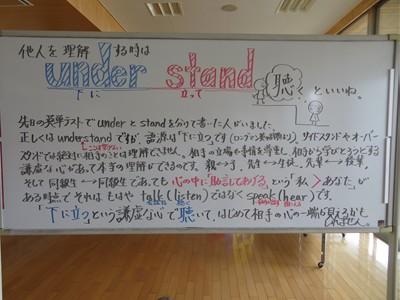 他人を理解する時は
under stand
下に 立って
聴く といいね。
先日の英単テストでunderとstandを分けて書いた人がいました。
正しくはunderstandですが、語源は「下に立つ」です サイドスタンドやオーバー
スタンドでは絶対に相手のことは理解できません。相手の立場や事情を尊重し、相手から学びとろうとする
謙虚な心があって本多の理解ができるのです。親↔子、先生↔生徒、先輩↔後輩
そして同級生↔同級生であっても心の中に「助言してあげる」という「私>あなた」が
ある時点でそれはもはやtalk(listen)ではなくspeak(hear)です。
「下に立つ」という謙虚な心で"聴いて"、はじめて相手の心の一端が見えるかも
しれません。